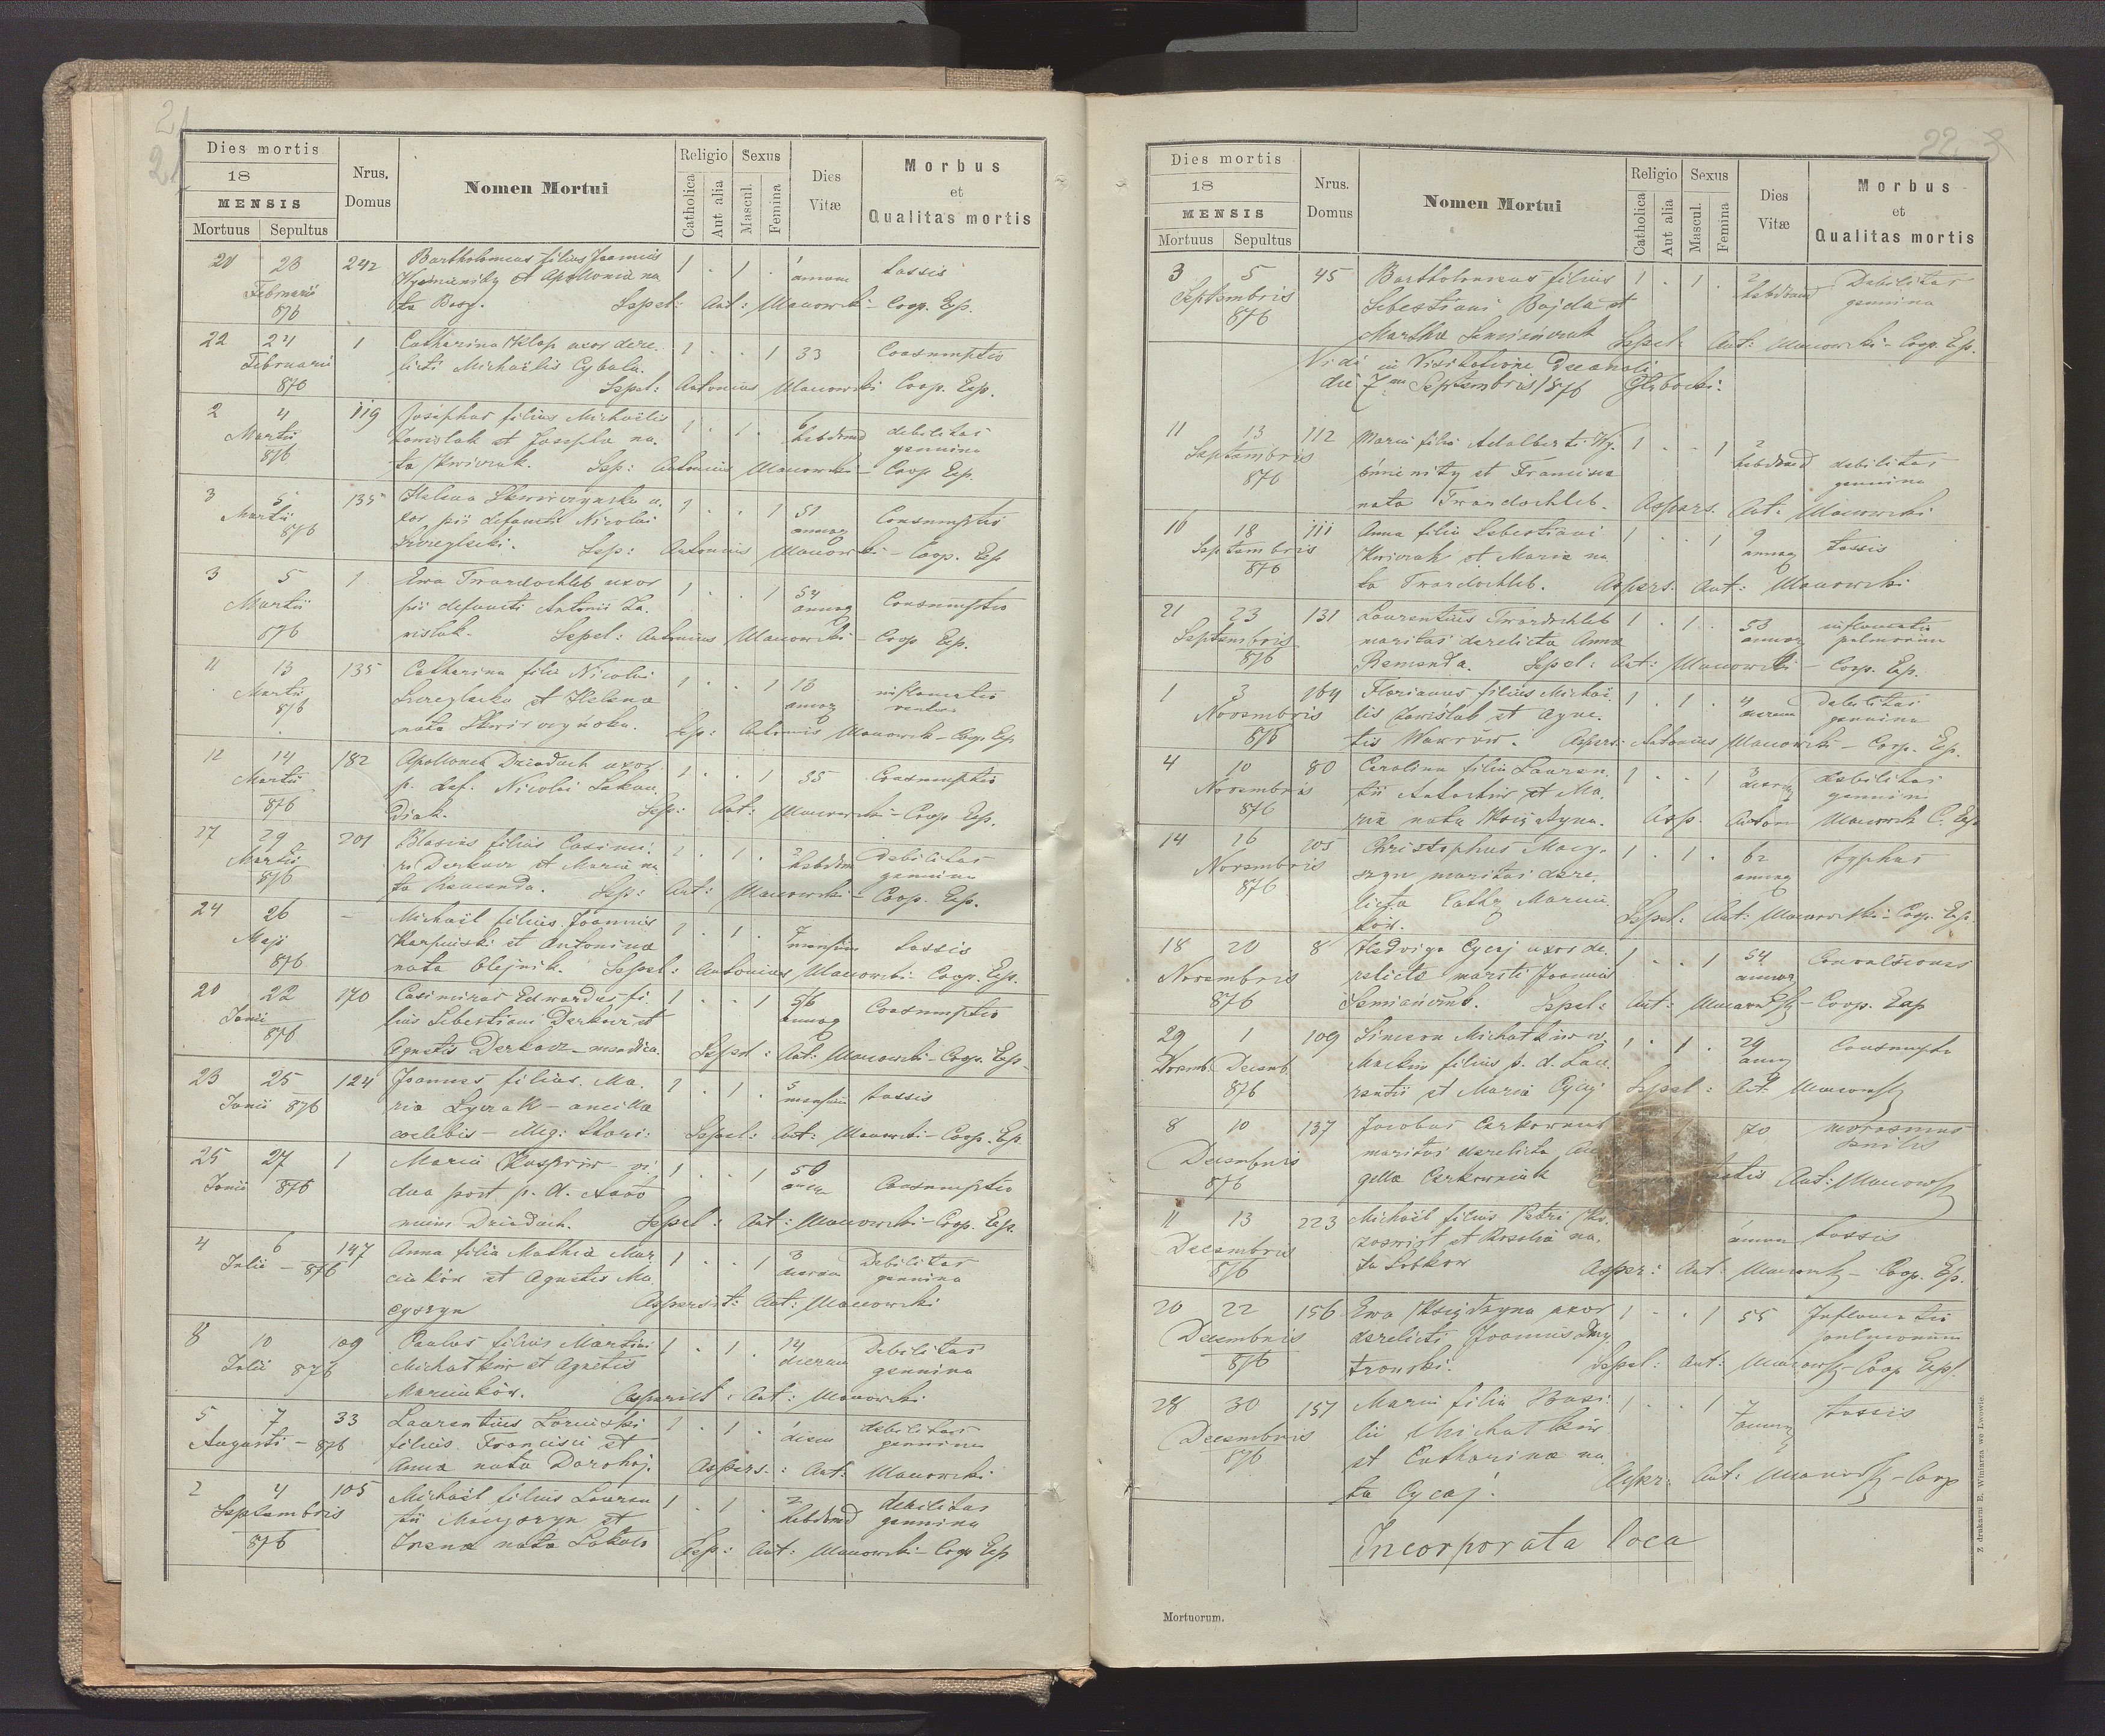 21
21
Dies mortis
18
MENSIS
Mortuus Sepultus
Nrus. Domus
Nomen Mortui
Religio
Catholica
Aut alia
Sexus
Mascul.
Femina
Dies Vitæ
Morbus
et
Qualitas mortis
20 23 242 Bartholomeus filius Joannis 1 . 1 . 1 tussis
Februarii et Apollonia na
876 ta Sepel: Ant: Manowski - Coop. Exp.
22 24 1 Catharina uxor dere- 1 . . 1 33 Consumptio
Februarii licti Michaëlis Cybala.
876 Sepel: Antonius Manowski Coop. Exp.
2 4 119 Josephus filius Michaëlis 1 . 1 . 6 debilitas
Martii et Josepha na- hebdomad genuina
876 ta Kwiorak. Sep: Antonius Manowski - Coop Exp.
3 5 135 Helena u- 1 . . 1 51 Consumptio
Martii xor pii defuncti Nicolai annor
876 Sep: Antonius Manowski - Coop. Exp
3 5 1 Ewa Twardochleb uxor 1 . . 1 54 Consumptio
Martii pii defuncti Antonii Za- annor
876 wislak. Sepel: Antonius Manowski - Coop Exp.
11 13 135 Catharina filia Nicolai 1 . . 1 13 inflamatio
Martii et Helena annor
876 nata Sep: Antonius Manowski - Coop Exp
12 14 182 Dziaduch uxor 1 . . 1 55 Consumptio
Martii p. def. Nicolai
876 Sep: Ant: Manowski - Coop Exp.
27 29 201 Blasius filius Casimi- 1 . 1 . Debilitas
Martii ri Derkacz et Maria na genuina
876 ta Remenda. Sep: Ant: Manowski - Coop. Exp.
24 26 - Michaël filius Joannis 1 . 1 . 7 tussis
Maji Karpinski et Antonina mensium
876 nata Olejnik. Sepel: Antonius Manowski Coop. Exp.
20 22 170 Casimirus Edwardus fi- 1 . . 1 56 Consumptio
Junii lius Sebestiani Derkacz et annor
876 Agnetis Derkacz - mendica. Sepel: Ant: Manowski - Coop. Exp.
23 25 124 Joannes filius Ma- 1 . 1 . 5 tussis
Junii 876 ria - ancilla mensium
coelebis - Sepel: Ant: Manowski - Coop. Exp
25 27 1 Maria Kasprów - vi- 1 . . 1 50 Consumptio
Junii 876 dua post p. d.
Dziaduch. Sepel: Ant: Manowski - Coop. Exp.
4 6 147 Anna filia Mathia Mar- 1 . . 1 3 Debilitas
Julii - 876 cinków et Agnetis Ma- dierum genuina
cyszyn Aspersit: Ant: Manowski
8 10 109 Paulus filius Martini 1 . 1 . 14 Debilitas
Julii 876 Michatków et Agnetis dierum genuina
Marcinków. Aspersit: Ant: Manowski
5 7 33 Laurentius 1 . 1 . 1 debilitas
Augusti - 876 filius Francisci et diem genuina
Anna nata Dorohoj. Aspers.: Ant: Manowski
2 4 105 Michaël filius Lauren 1 . 1 . 2 debilitas
Septembris tii Macyszyn et hebdomad genuina
876 Irena nata Sep: Ant: Manowski - Coop Exp
22
Dies mortis
18
MENSIS
Mortuus Sepultus
Nrus. Domus
Nomen Mortui
Religio
Catholica
Aut alia
Sexus
Mascul.
Femina
Dies Vitæ
Morbus
et
Qualitas mortis
3 5 45 Bartholomeus filius 1 . 1 . 2 Debilitas
Septembris Sebestiani Bajda et hebdomad genuina
876 Martha Sepel: Ant: Manowski - Coop. Exp.
Vidi in Visitatione Decanali
die 7ma Septembris 1876 Głębocki.
11 13 112 Maria filia Adalberti Wy- 1 . . 1 2 debilitas
Septembris et Francisca hebdomad genuina
876 nata Twardochleb. Aspers. Ant: Manowski
16 18 111 Anna filia Sebestiani 1 . . 1 9 tussis
Septembris Kwiorak et Maria na annor
876 ta Twardochleb. Aspers. Ant: Manowski
21 23 131 Laurentius Twardochleb 1 . 1 . 53 inflamatio
Septembris maritus derelicta Anna annor pulmonum
876 Remenda. Sepel: Ant: Manowski - Coop. Exp.
1 3 164 Florianus filius Michaë- 1 . 1 . 4 debilitas
Novembris lis Zawiślak et Agne- dierum genuina
876 tis Wawrów. Aspers: Antonius Manowski - Coop. Exp.
4 10 80 Carolina filia Lauren- 1 . . 1 3 debilitas
Novembris tii et Ma- genuina
876 ria nata Asp. Anton Manowski C. Exp
14 16 105 Christophus Macy- 1 . 1 . 62 typhus
Novembris szyn maritus dere- annor
876 licta Cath. Marcin-
ków. Sepel: Ant: Manowski - Coop. Exp.
18 20 8 Hedviga Cycaj uxor de- 1 . . 1 54 Convulsiones
Novembris relicta mariti Joannis annor
876 Sepel: Ant: Manowski - Coop. Exp
29 1 109 Simeon Michatków v. 1 . 1 . 29 Consumptio
Novemb. Decemb. filius p. d. Lau- annor
876 rentii et Maria Cycaj Sepel: Ant: Manowski
8 10 137 Jacobus 70 marasmus
Decembris maritus derelicta An- senilis
876 gella Ant: Manowski
11 13 223 Michaël filius Petri 1 tussis
Decembris et Rosalia na- annum
876 ta Asper: Ant: Manowski - Coop. Exp.
20 22 156 Ewa uxor 1 . . 1 55 Inflamatio
Decembris derelicti Joannis Dmy- pulmonum
876 trowski. Sepel: Ant: Manowski - Coop Exp.
28 30 157 Maria filia Basi- 1 . . 1 7 tussis
Decembris lii Michatków annor
876 et Catharina na-
ta Cycaj. Asper: Ant: Manowski - Coop
Incorporata loca
Mortuorum.
Z drukarni E. Winiarza we Lwowie.